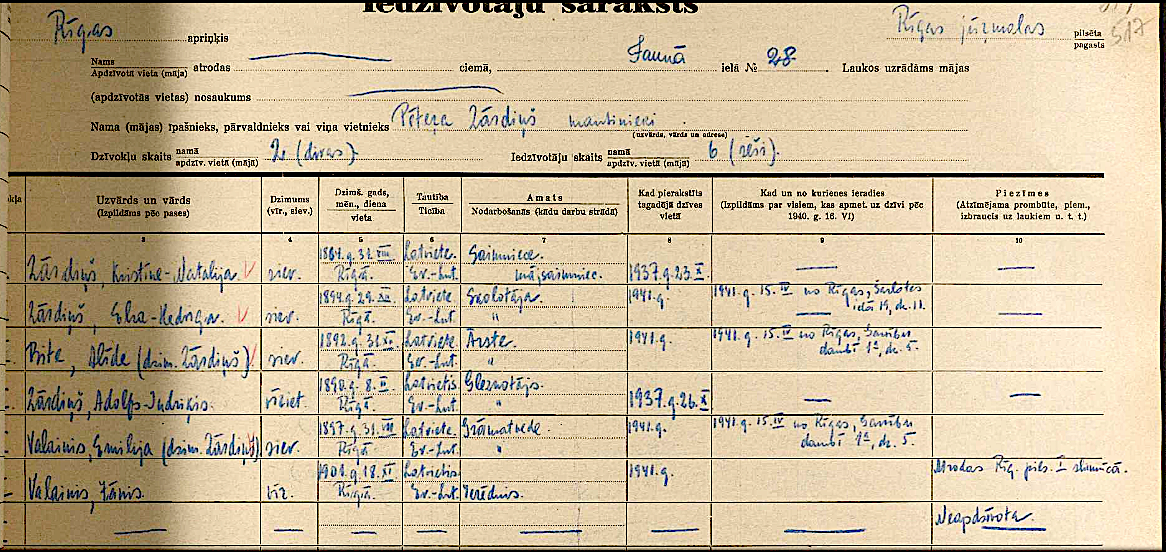 Iedzīvotāju saraksts
Rīgas apriņķis Rīgas jūrmalas pilsēta
pagasts 517
Nams
Apdzīvotā vieta (māja) atrodas ciemā, Jaunā ielā № 28. Laukos uzrādāms mājas
(apdzīvotās vietas) nosaukums
Nama (mājas) īpašnieks, pārvaldnieks vai viņa vietnieks Pētera Zārdiņš mantinieki
(uzvārds, vārds un adrese)
Dzīvokļu skaits namā
apdzīv. vietā (mājā) 2 (divas) Iedzīvotāju skaits namā
apdzīv. vietā (mājā) 6 (seši).
Uzvārds un vārds
(Izpildāms pēc pases)
Dzimums
(vīr., siev.)
Dzimš. gads,
mēn., diena
vieta
Tautība
Ticība
Amats
Nodarbošanās (kādu darbu strādā)
Kad pierakstīts
tagadējā dzīves
vietā
Kad un no kurienes ieradies
(Izpildāms par visiem, kas apmet. uz dzīvi pēc
1940. g. 16. VI)
Piezīmes
(Atzīmējama prombūte, piem.,
izbraucis uz laukiem u. t. t.)
3 4 5 6 7 8 9 10
1884.g. 31. VIII Latviete Saimniece.
Zārdiņš, Kristine-Natalija. siev. Rīgā. Ev.-Lut. mājsaimniece. 1937.g. 23. X.
1894.g. 29. XII Latviete Skolotāja. 1941.g. 1941.g. 15. IV no Rīgas, Sarlotes
Zārdiņš, Elza-Hedviga. siev. Rīgā. Ev.-Lut. " ielā 19, dz. 11.
1892.g. 31. XII Latviete Ārste. 1941.g. 1941.g. 15. IV no Rīgas, Ganību
Bite, Alīde (dzim. Zārdiņš) siev. Rīgā. Ev.-Lut. " dambī 1ª, dz. 5.
1890.g. 8. II. Latvietis Gleznotājs.
Zārdiņš, Adolfs-Indriķis. vīriet. Rīgā. Ev.-Lut. " 1937.g. 26. X
1897.g. 31. VIII Latviete Grāmatvede. 1941.g. 1941.g. 15. IV no Rīgas, Ganību
Valainis, Emilija (dzim. Zārdiņš) siev. Rīgā. Ev.-Lut. " dambī 1ª, dz. 5.
1901.g. 18. XI Latvietis 1941.g. Atrodas Rīg. pils. I slimnīcā.
Valainis, Jānis. vīr. Rīgā. Ev.-Lut. Ierēdnis.
Neapdzīvota.